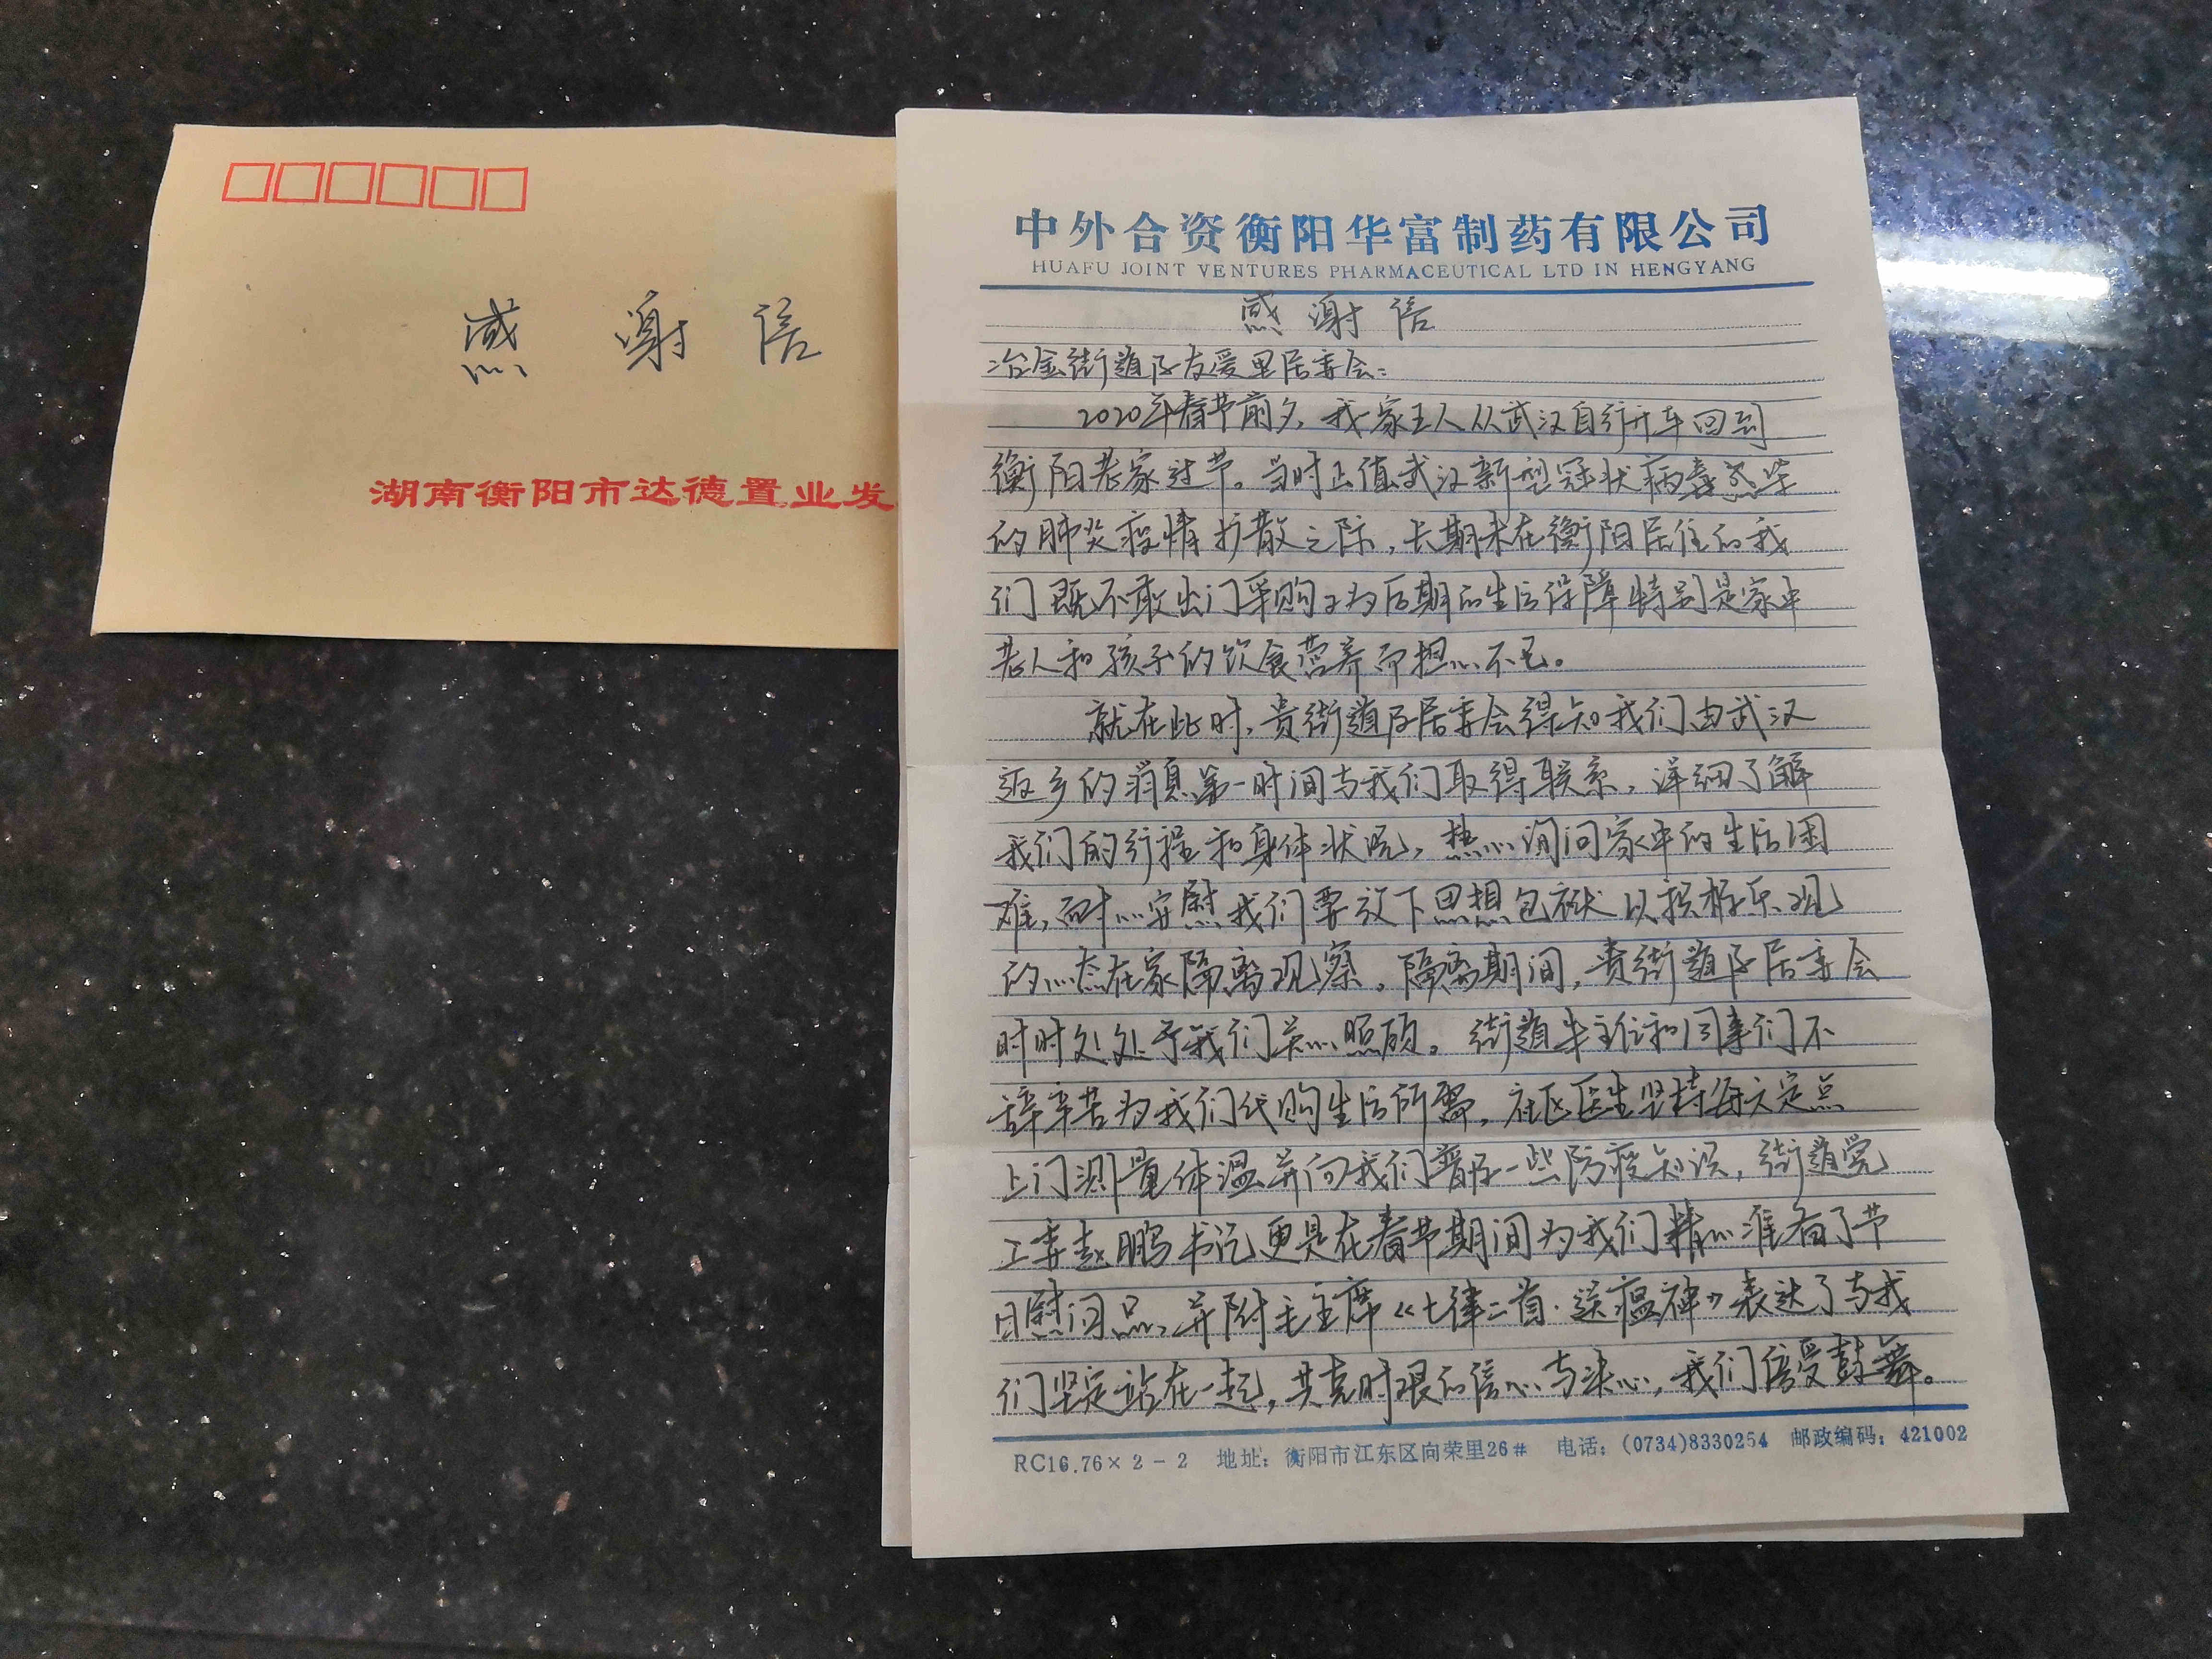 感谢信
湖南衡阳市达德置业发
中外合资衡阳华富制药有限公司
HUAFU JOINT VENTURES PHARMACEUTICAL LTD IN HENGYANG
感谢信
冶金街道及友爱里居委会:
2020年春节前夕,我一家五人从武汉自行开车回到
衡阳老家过节。当时正值武汉新型冠状病毒感染
的肺炎疫情扩散之际,长期未在衡阳居住的我
们既不敢出门采购又为后期的生活保障特别是家中
老人和孩子的饮食营养而担心不已。
就在此时,贵街道及居委会得知我们由武汉
返乡的消息第一时间与我们取得联系,详细了解
我们的行程和身体状况,热心询问家中的生活困
难,耐心安慰我们要放下思想包袱以积极乐观
的心态在家隔离观察。隔离期间,贵街道及居委会
时时处处予我们关心照顾。街道主任和同事们不
辞辛苦为我们代购生活所需,社区医生坚持每天定点
上门测量体温并向我们普及一些防疫知识,街道党
工委赵鹏书记更是在春节期间为我们精心准备了节
日慰问品,并附毛主席《七律二首·送瘟神》表达了与我
们坚定站在一起,共克时艰的信心与决心,我们倍受鼓舞。
RC16.76×2-2 地址:衡阳市江东区向荣里26# 电话:(0734)8330254 邮政编码:421002